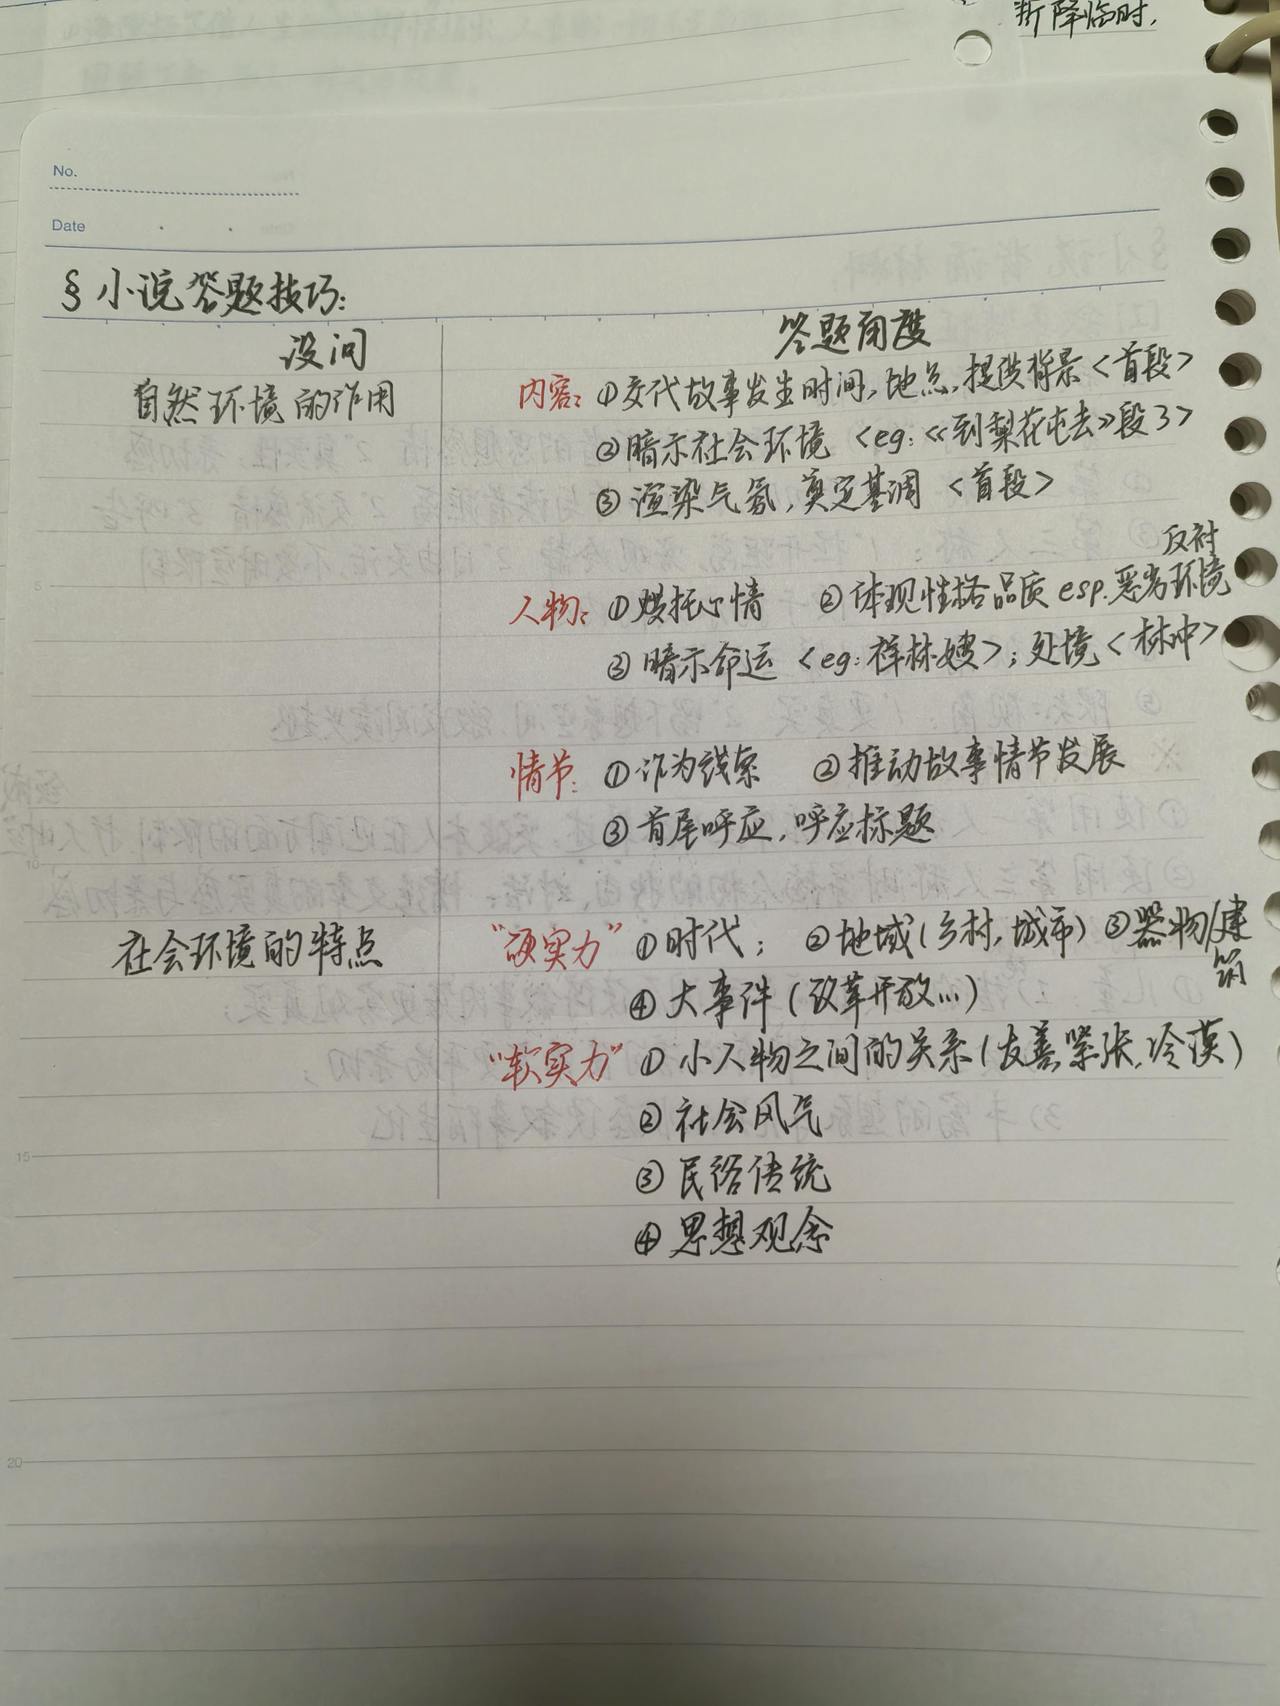 断降临时,
No.
Date
§小说答题技巧:
设问
答题角度
自然环境的作用
内容: ①交代故事发生时间,地点,提供背景<首段>
②暗示社会环境 <eg:《到梨花屯去》段3>
③渲染气氛,奠定基调 <首段>
反衬
人物: ①烘托心情 ②体现性格品质 esp.恶劣环境
③暗示命运 <eg:祥林嫂>;处境<林冲>
情节: ①作为线索 ②推动故事情节发展
③首尾呼应,呼应标题
社会环境的特点
"硬实力" ①时代; ②地域(乡村,城市) ③器物/建
筑
④大事件(改革开放...)
"软实力" ①小人物之间的关系(友善,紧张,冷漠)
②社会风气
③民俗传统
④思想观念
5
10
15
20